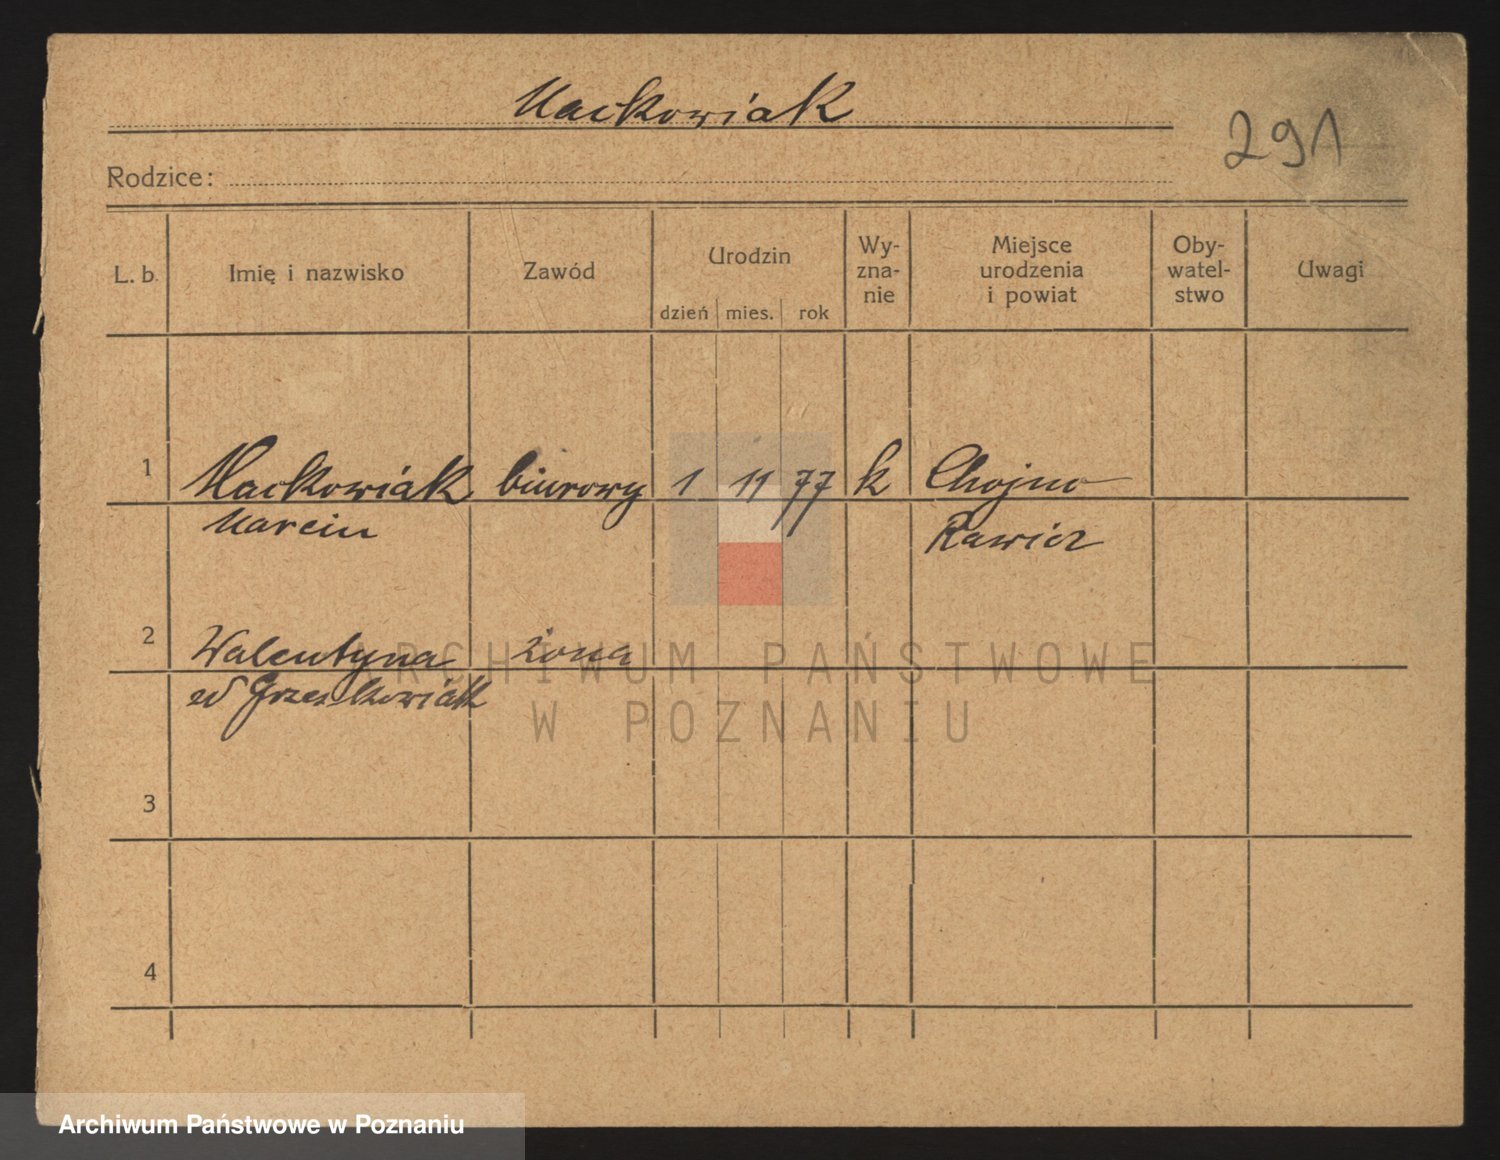 Mackowiak
291
Rodzice:
L. b. Imię i nazwisko Zawód Urodzin dzień mies. rok Wy-zna-nie Miejsce urodzenia i powiat Oby-watel-stwo Uwagi
1 Mackowiak biurowy 1 11 77 k Chojno
Marcin Rawicz
2 Walentyna żona
zd Grześkowiak
3
4
ARCHIWUM PAŃSTWOWE
W POZNANIU
Archiwum Państwowe w Poznaniu